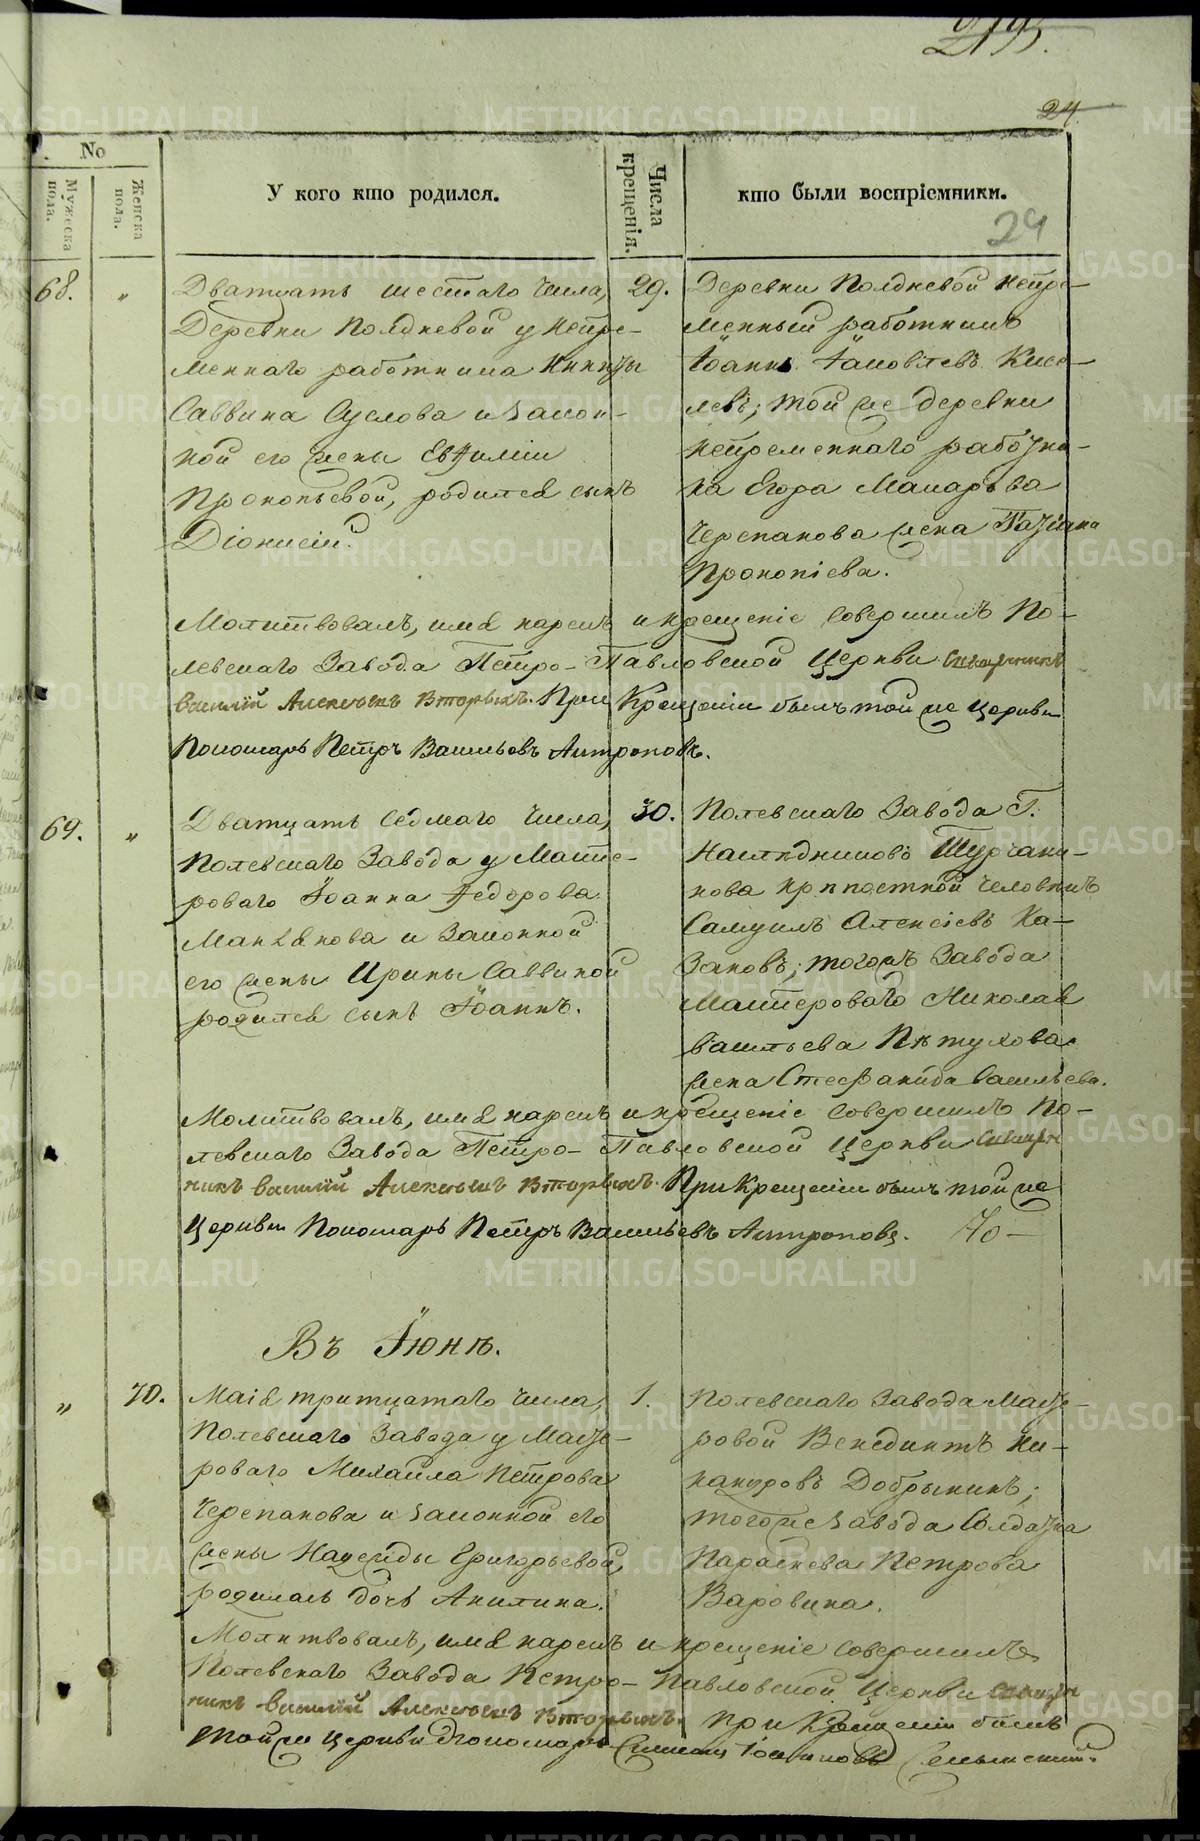 295.
24.
№
Мужеска пола.
Женска пола.
У кого кто родился.
Числа крещенія.
кто были воспріемники.
24
68.
"
Дватцать шестаго числа,
Деревни Полдневой у непре-
меннаго работника Никиты
Саввина Суслова и закон-
ной его жены Евѳиміи
Прокопьевой, родился сынъ
Діонисій.
29.
Деревни Полдневой непре-
менный работникъ
Іоаннъ Іаковлевъ Кисе-
левъ; той же деревни
непременнаго работни-
ка Егора Макарьва
Черепанова жена Татіана
Прокопіева.
Молитвовалъ, имя нарекъ и крещеніе совершилъ По-
левскаго Завода Петро-Павловской Церкви Священникъ
Василій Алексѣевъ Вторыхъ. При Крещеніи былъ той же Церкви
Пономарь Петръ Васильевъ Антроповъ.
69.
"
Дватцать седмаго числа,
Полевскаго Завода у Масте-
роваго Іоанна Ѳедорова
и Законной
его жены Ирины Саввиной
родился сынъ Іоаннъ.
30.
Полевскаго Завода Г.
Наслѣдниковъ Турчани-
нова крѣпостной человѣкъ
Самуилъ Алексіевъ Ка-
заковъ; тогожъ Завода
Мастероваго Николая
Васильева Пѣтухова
жена Стефанида Васильева.
Молитвовалъ, имя нарекъ и крещеніе совершилъ По-
левскаго Завода Петро-Павловской Церкви Священ
никъ Василій Алексѣевъ Вторыхъ. При Крещеніи былъ той же
Церкви Пономарь Петръ Васильевъ Антроповъ. 70-
Въ Іюнѣ.
"
70.
Маія тритцатаго числа,
Полевскаго Завода у Масте-
роваго Михаила Петрова
Черепанова и законной его
жены Надежды Григорьевой,
родилась дочь Акилина.
1.
Полевскаго Завода Масте-
ровой Венедиктъ Ни-
кануровъ Добрынинъ;
тогоже завода Солдатка
Параскева Петрова
Варовина.
Молитвовалъ, имя нарекъ и крещеніе совершилъ
Полевскаго Завода Петро-Павловской Церкви Священ
никъ Василій Алексѣевъ Вторыхъ. При Крещеніи былъ
той же Церкви Пономарь
METRIKI.GASO-URAL.RU